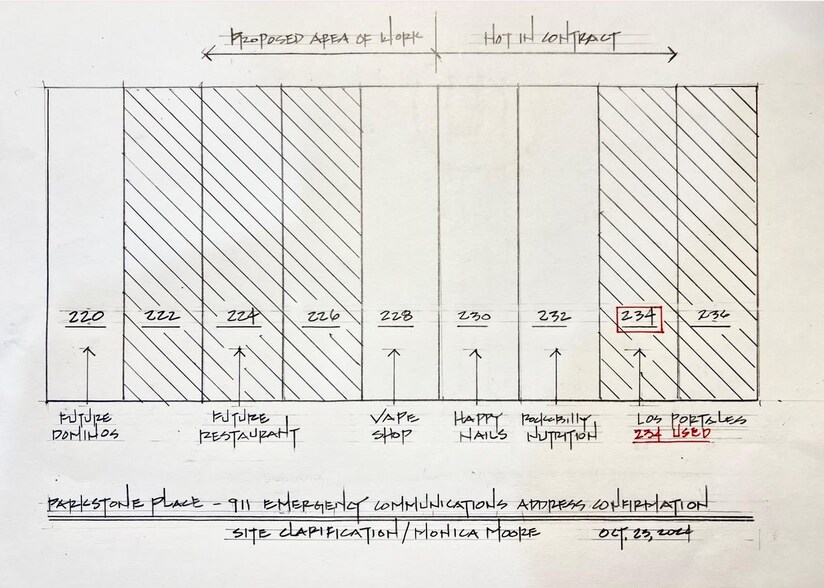 PROPOSED AREA OF WORK
NOT IN CONTRACT
220
222
224
226
228
230
232
234
236
FUTURE
DOMINOS
FUTURE
RESTAURANT
VAPE
SHOP
HAPPY
NAILS
ROCKABILLY
NUTRITION
LOS PORTALES
234 USED
PARKSTONE PLACE - 911 EMERGENCY COMMUNICATIONS ADDRESS CONFIRMATION
SITE CLARIFICATION/MONICA MOORE OCT. 23, 2024